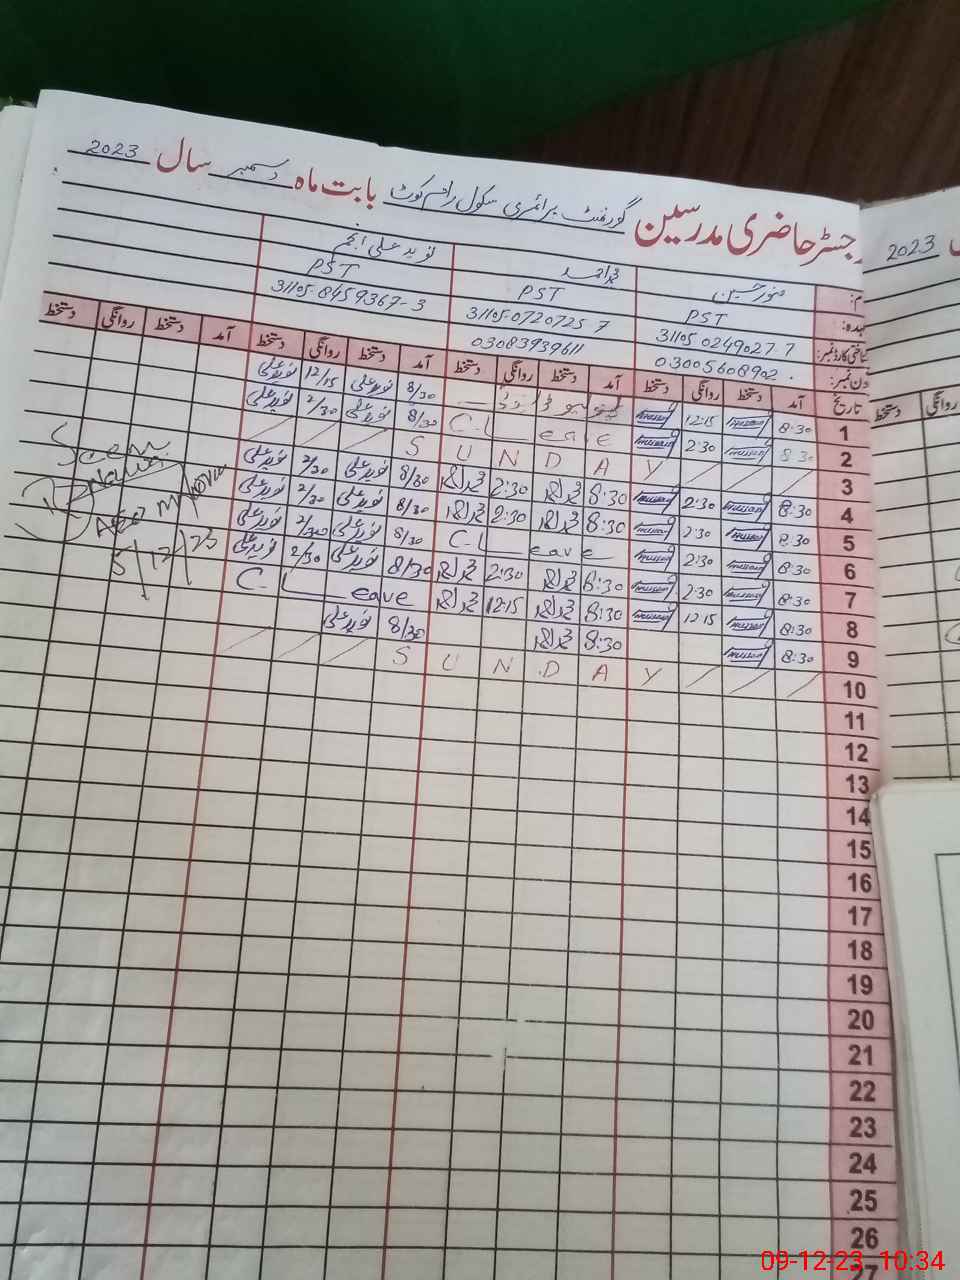 رجسٹر حاضری مدرسین گورنمنٹ پرائمری سکول رام کوٹ بابت ماہ دسمبر سال 2023
منور حسین نوید علی انجم
PST PST PST
31105-0249027-7 31105-0720725 7 31105-8459367-3
03005608902 03083939611
تاریخ آمد دستخط روانگی دستخط آمد دستخط روانگی دستخط آمد دستخط روانگی دستخط آمد دستخط روانگی دستخط
1 8:30 12:15 8/30 نوید علی 12/15 نوید علی
2 8:30 2:30 C-Leave 8/30 نوید علی 2/30 نوید علی
3 SUNDAY
4 8:30 2:30 8:30 2:30 8/30 نوید علی 2/30 نوید علی
5 8:30 2:30 8:30 2:30 8/30 نوید علی 2/30 نوید علی
6 8:30 2:30 C-Leave 8/30 نوید علی 2/30 نوید علی
7 8:30 2:30 8:30 2:30 8/30 نوید علی 2/30 نوید علی
8 8:30 12:15 8:30 12:15 C-Leave
9 8:30 8:30 8/30 نوید علی
10 SUNDAY
11
12
13
14
15
16
17
18
19
20
21
22
23
24
25
26
27
Seen
AEO
5/12/23
2023
دستخط روانگی
09-12-23 10:34